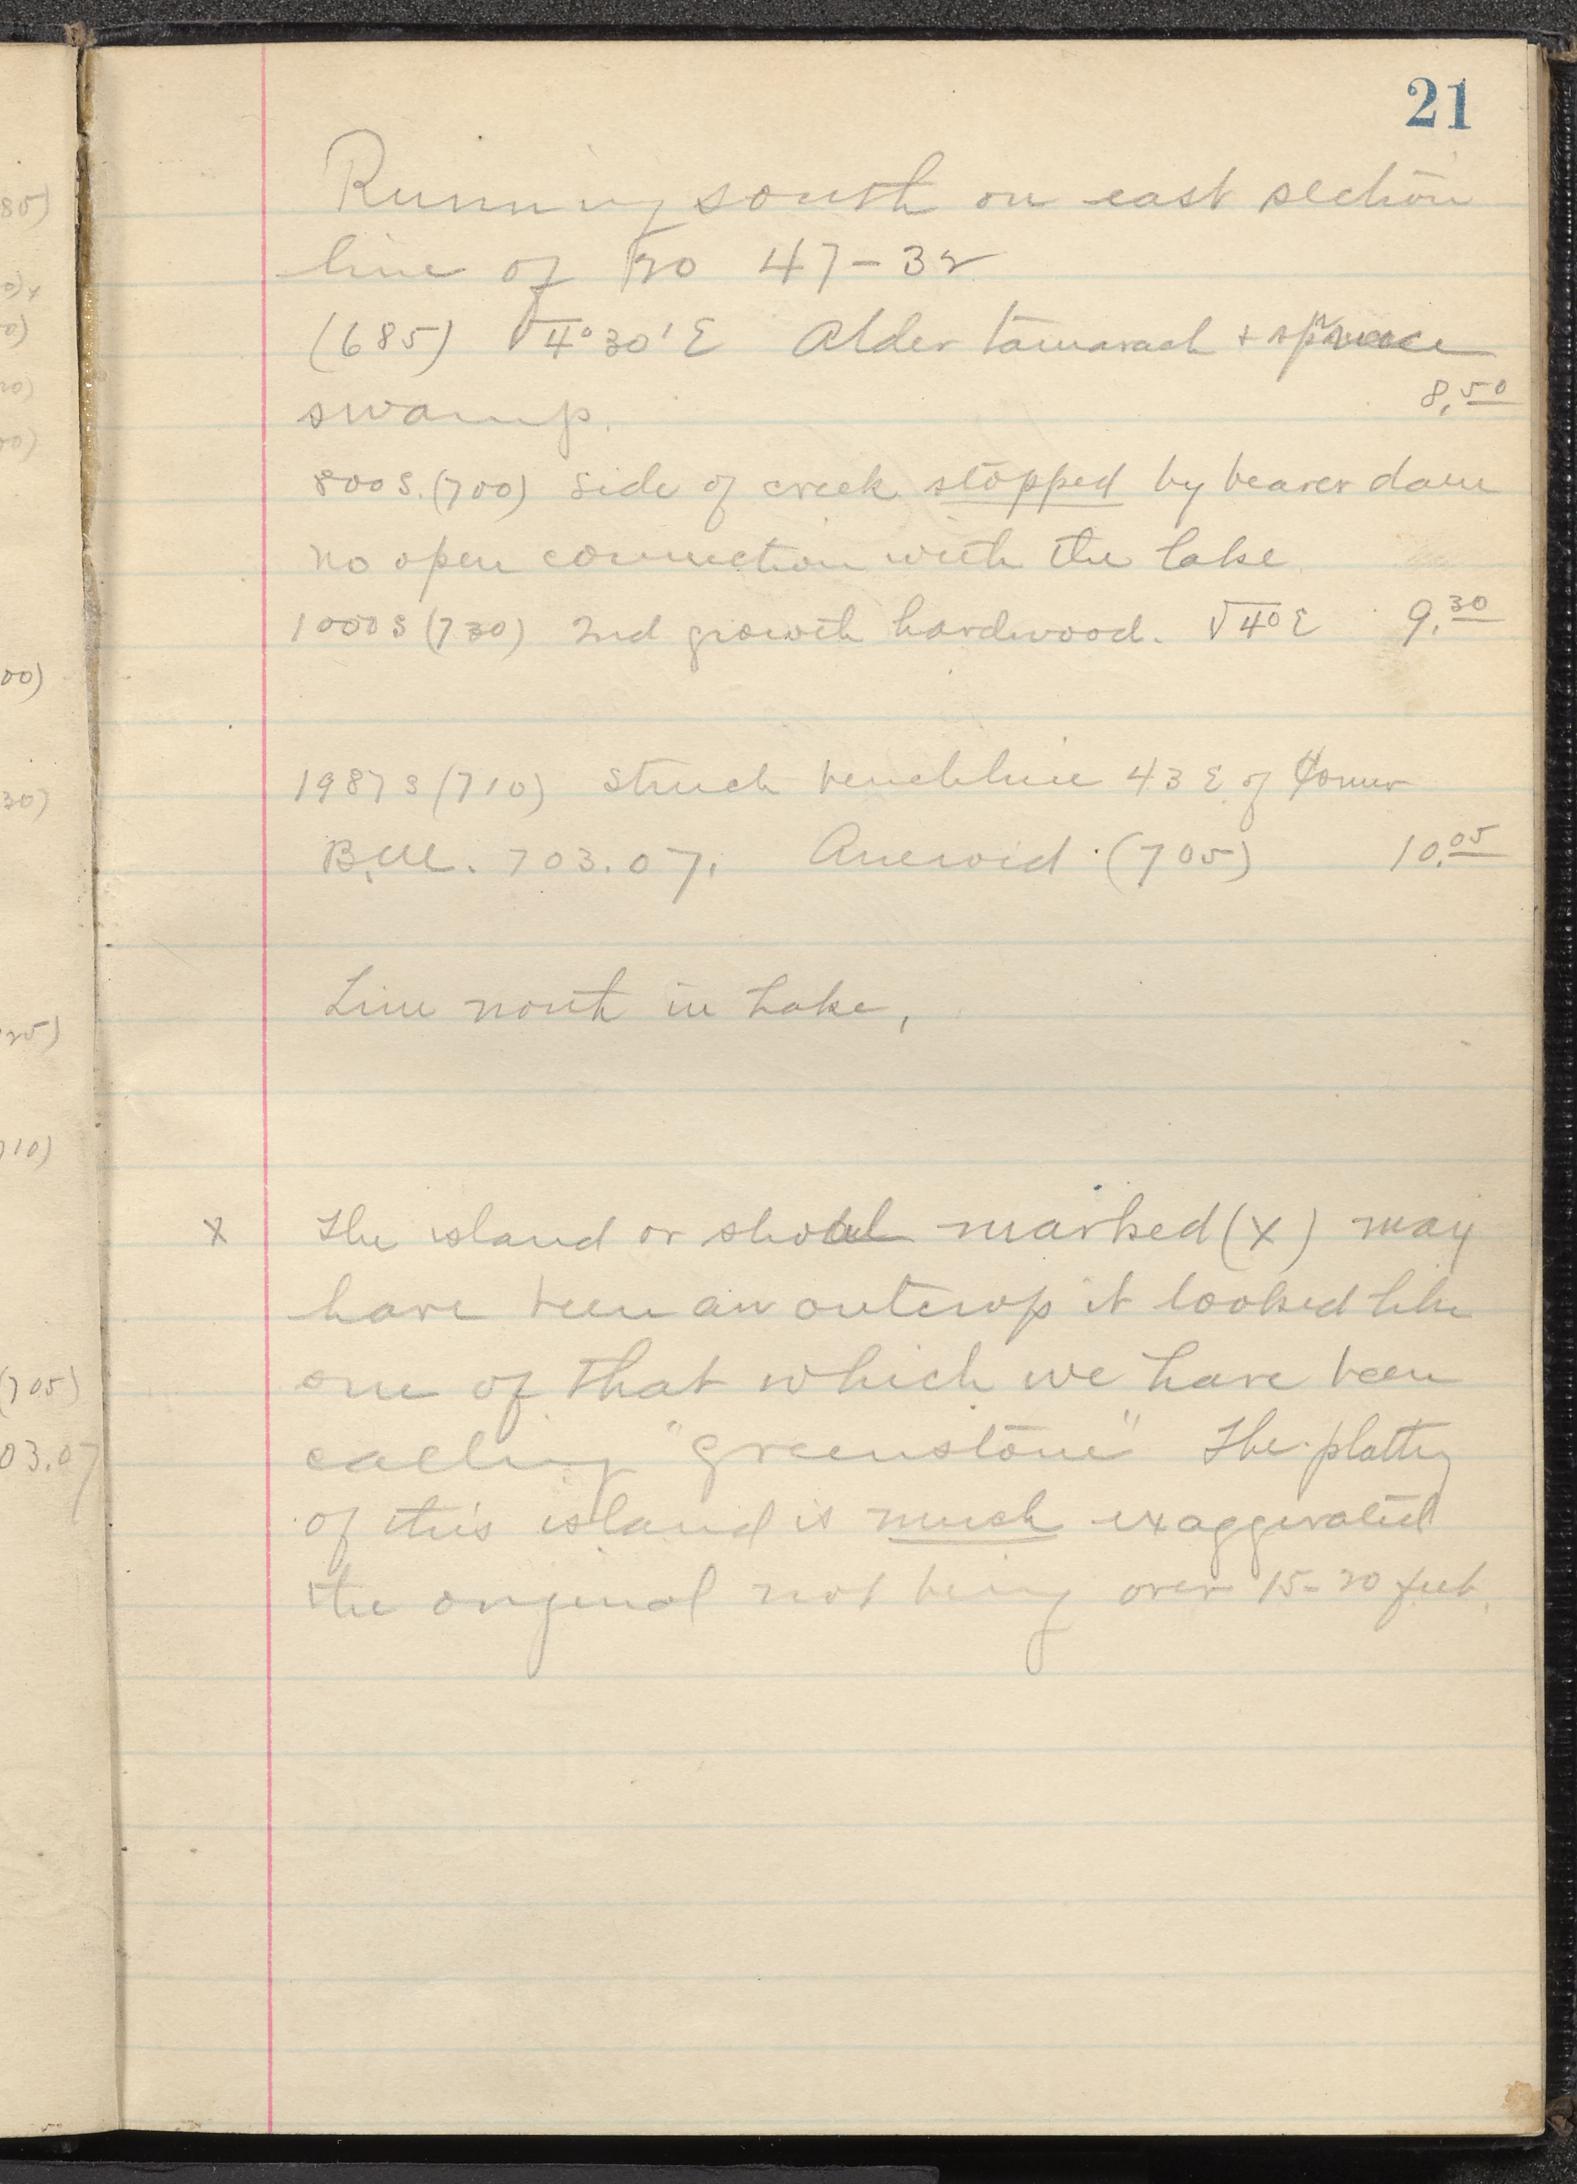 21
Running south on east section
line of 20 47-32
(685) √4°30'E Alder tamarack + spruce
swamp. 8.50
800 S. (700) Side of creek stopped by beaver dam
no open connection with the lake
1000 S (730) 2nd growth hardwood. √4°E 9.30
1987 S (710) Struck benchline 43 E of Corner
B.M. 703.07. Aneroid (705) 10.05
Line north in Lake,
x The island or shoal marked (x) may
have been an outcrop it looked like
one of that which we have been
calling "greenstone" The platting
of this island is much exaggerated
the original not being over 15-20 feet.
85)
00)
30)
25)
710)
(705)
03.07